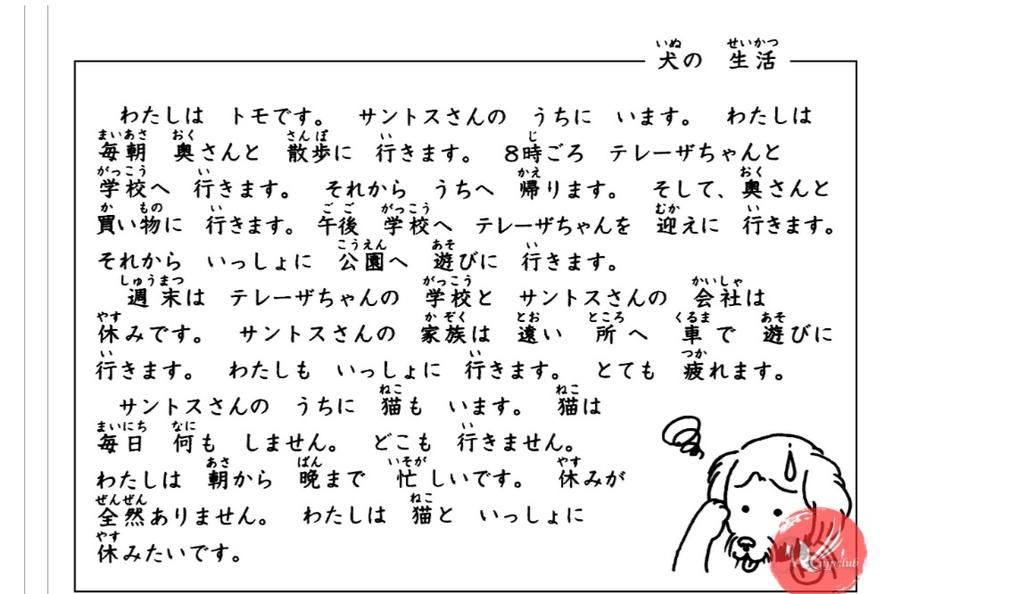 犬の 生活
わたしは トモです。 サントスさんの うちに います。 わたしは
毎朝 奥さんと 散歩に 行きます。 8時ごろ テレーザちゃんと
学校へ 行きます。 それから うちへ 帰ります。 そして、奥さんと
買い物に 行きます。 午後 学校へ テレーザちゃんを 迎えに 行きます。
それから いっしょに 公園へ 遊びに 行きます。
週末は テレーザちゃんの 学校と サントスさんの 会社は
休みです。 サントスさんの 家族は 遠い 所へ 車で 遊びに
行きます。 わたしも いっしょに 行きます。 とても 疲れます。
サントスさんの うちに 猫も います。 猫は
毎日 何も しません。 どこも 行きません。
わたしは 朝から 晩まで 忙しいです。 休みが
全然ありません。 わたしは 猫と いっしょに
休みたいです。